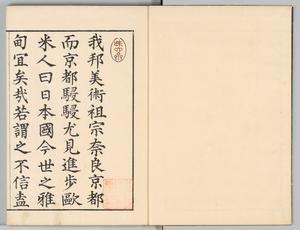 我邦美術祖宗奈良京都
而京都駸駸尤見進歩歐
米人曰日本國今世之雅
甸宜矣哉若謂之不信盍